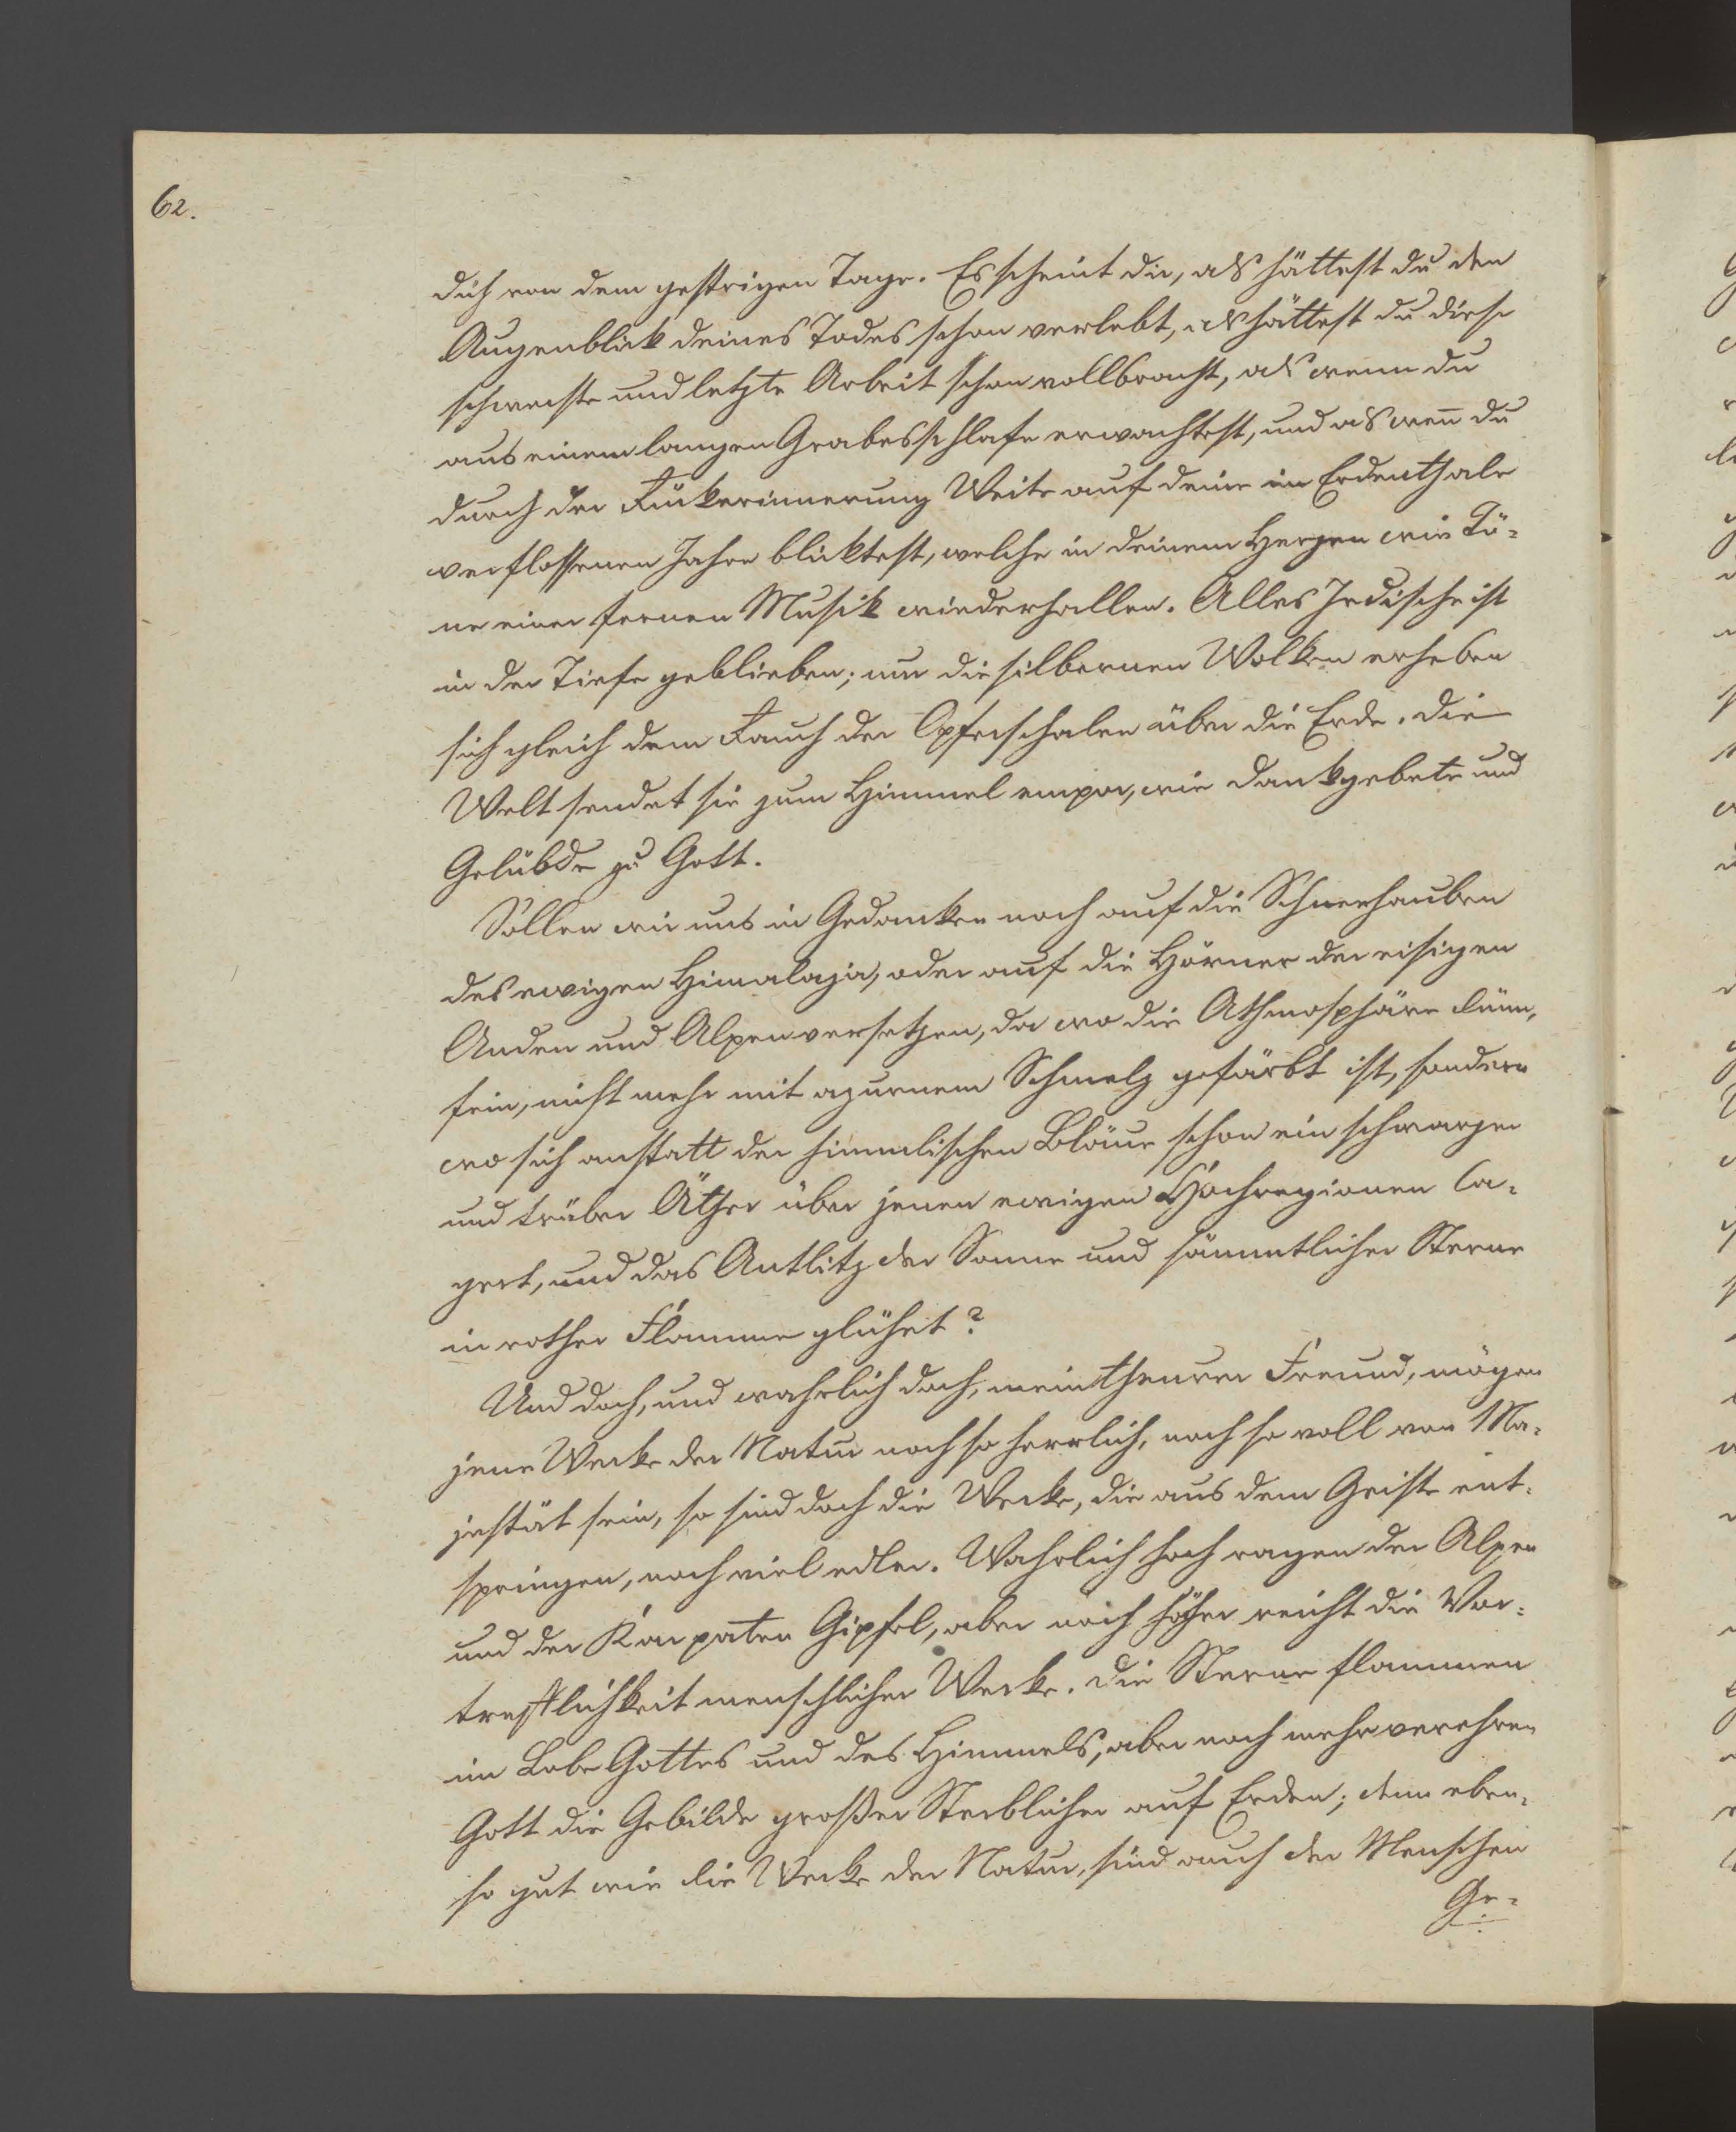 62.
dich von dem gestrigen Tage. Es scheint dir, als hättest du den
Augenblick deines Todes schon verlebt, als hättest du diese
schwerste und letzte Arbeit schon vollbracht, als wenn du
aus einem langen Grabesschlafe erwachtest, und als wen̄ du
durch der Rückerinnerung Weite auf deine im Erdenthale
verflossenen Jahre blicktest, welche in deinem Herzen wie Tö-
ne einer fernen Musik wiederhallen. Alles Irdische ist
in der Tiefe geblieben; nur die silbernen Wolken erheben
sich gleich dem Rauch der Opferschalen über die Erde. Die
Welt sendet sie zum Himmel empor, wie Dankgebete und
Gelübde zu Gott.
Sollen wir uns in Gedanken noch auf die Schneehauben
des ewigen Himalaja, oder auf die Hörner der eisigen
Anden und Alpen versetzen, da wo die Athmosphäre dünn,
fein, nicht mehr mit azurnem Schmelz gefärbt ist, sondern
wo sich anstatt der himmlischen Bläue schon ein schwarzer
und trüber Äther über jenen ewigen Hochregionen la-
gert, und das Antlitz der Sonne und sämmtlicher Sterne
in rother Flamme glühet?
Und doch, und wahrlich doch, mein theurer Freund, mögen
jene Werke der Natur noch so herrlich, noch so voll von Ma-
jestät sein, so sind doch die Werke, die aus dem Geiste ent-
springen, noch viel edler. Wahrlich hoch ragen der Alpen
und der Karpaten Gipfel, aber noch höher reicht die Vor-
trefflichkeit menschlicher Werke. Die Sterne flammen
im Lobe Gottes und des Himmels, aber noch mehr verehren
Gott die Gebilde großer Sterblicher auf Erden; denn eben-
so gut wie die Werke der Natur, sind auch der Menschen
Ge-